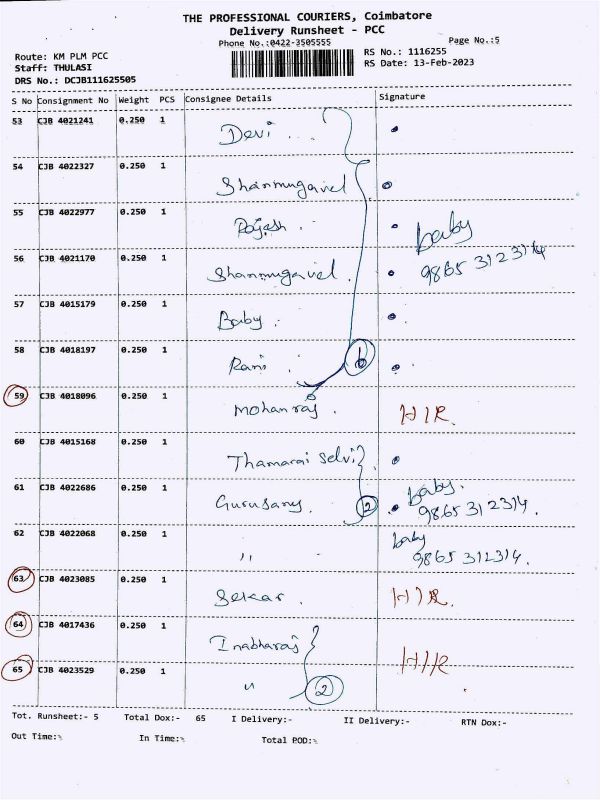 THE PROFESSIONAL COURIERS, Coimbatore
Delivery Runsheet - PCC
Phone No.:0422-3505555
Page No.:5
Route: KM PLM PCC
RS No.: 1116255
Staff: THULASI
RS Date: 13-Feb-2023
DRS No.: DCJB111625505
S No Consignment No Weight PCS Consignee Details Signature
53 CJB 4021241 0.250 1 Devi
54 CJB 4022327 0.250 1 Shanmugavel
55 CJB 4022977 0.250 1 Rajesh baby
9865 312314
56 CJB 4021170 0.250 1 Shanmugavel
57 CJB 4015179 0.250 1 Baby
58 CJB 4018197 0.250 1 Rani 6
59 CJB 4018096 0.250 1 Mohanraj HIR
60 CJB 4015168 0.250 1 Thamarai selvi
61 CJB 4022686 0.250 1 Gurusamy 2 baby.
9865 312314.
62 CJB 4022068 0.250 1 ,, baby
9865312314.
63 CJB 4023085 0.250 1 Sekar HIR.
64 CJB 4017436 0.250 1 HIR
65 CJB 4023529 0.250 1 " 2
Tot. Runsheet:- 5 Total Dox:- 65 I Delivery:- II Delivery:- RTN Dox:-
Out Time:- In Time:- Total POD:-